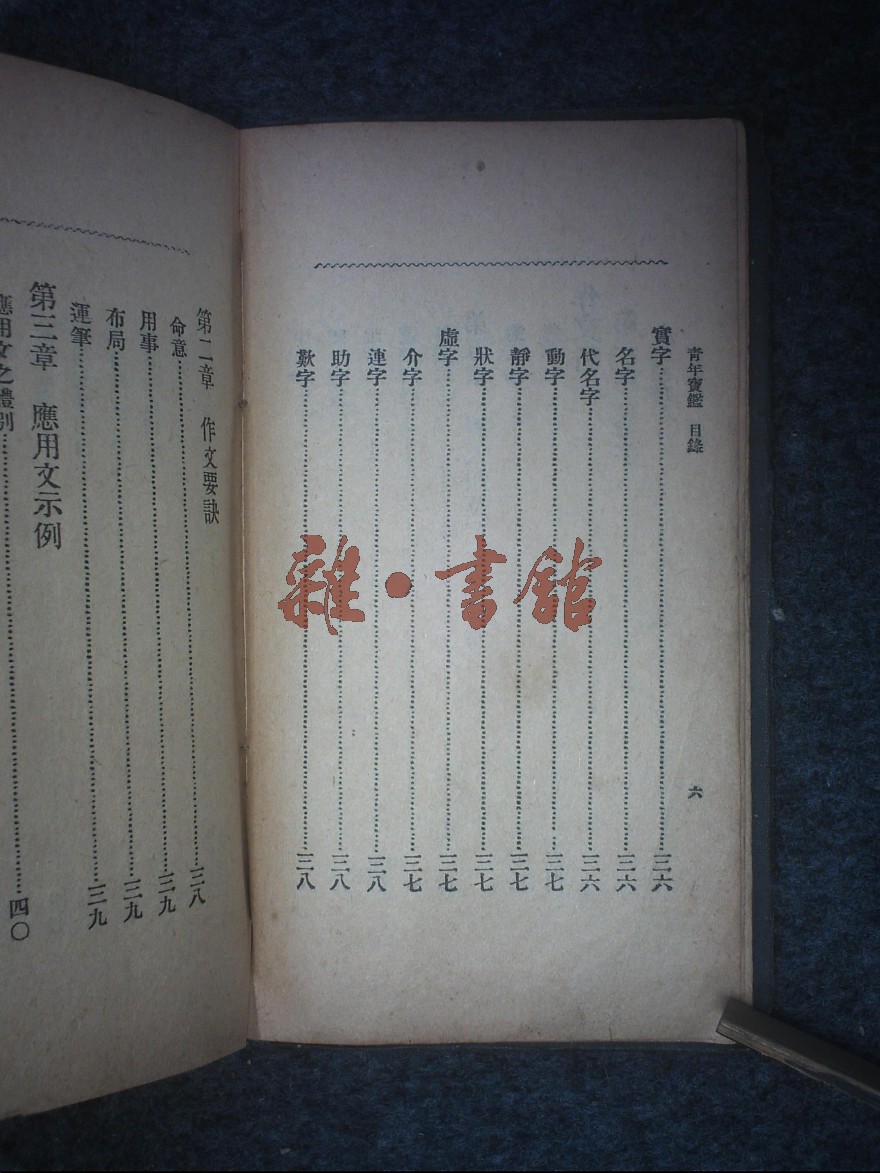 青年寶鑑 目錄
六
實字……三六
名字……三六
代名字……三六
動字……三七
靜字……三七
狀字……三七
虛字……三七
介字……三七
連字……三八
助字……三八
歎字……三八
第二章 作文要訣……三八
命意……三九
用事……三九
布局……三九
運筆……三九
第三章 應用文示例
應用文之體別……四〇
雜·書館